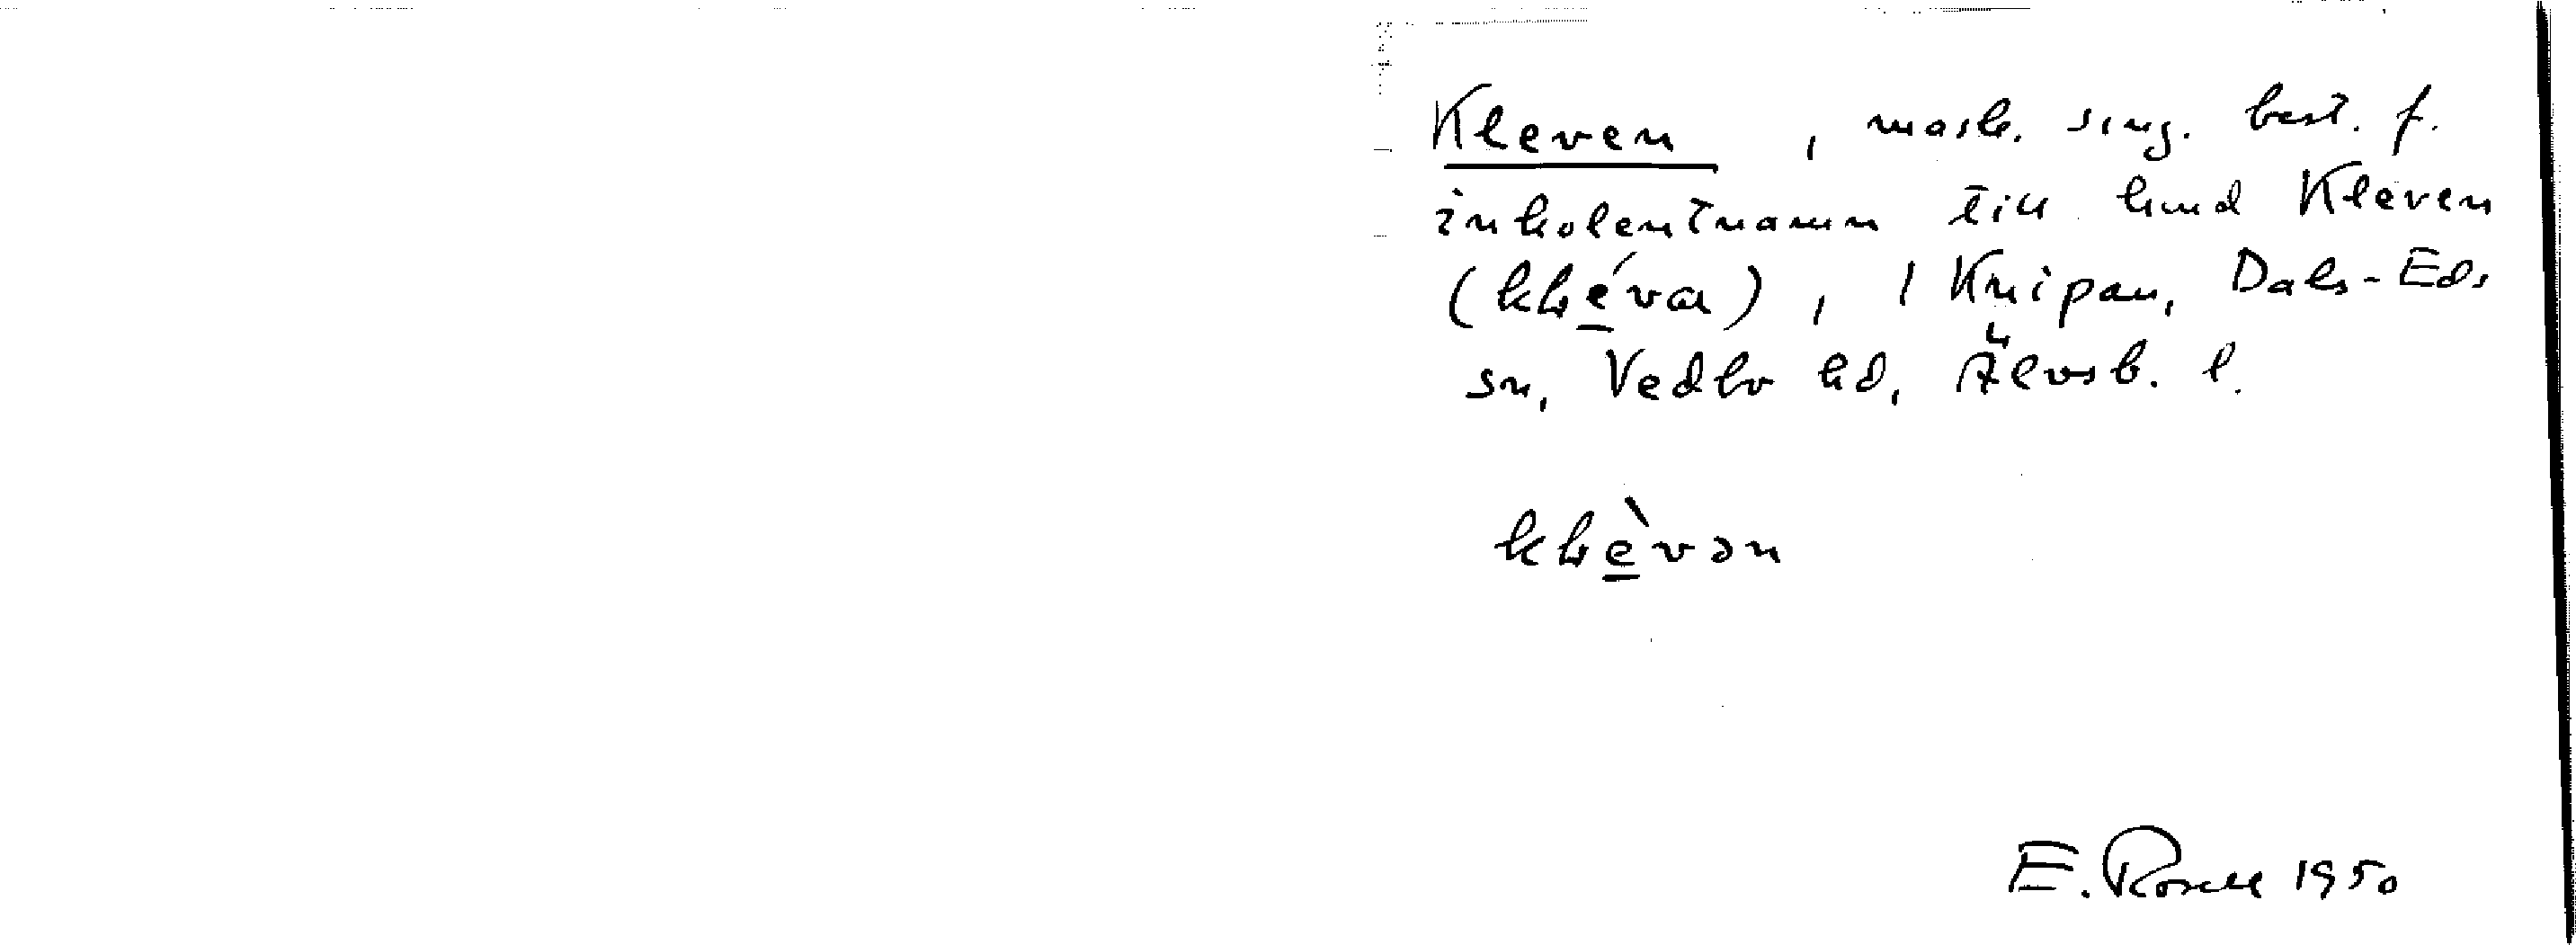 Kleven, mask. sing. best. f.
inkolentnamn till hmd Kleven
(kl̥é̱va), i Knipan, Dals-Eds
sn, Vedbo hd, Älvsb. l.
kl̥è̱vən
E. Rosell 1950